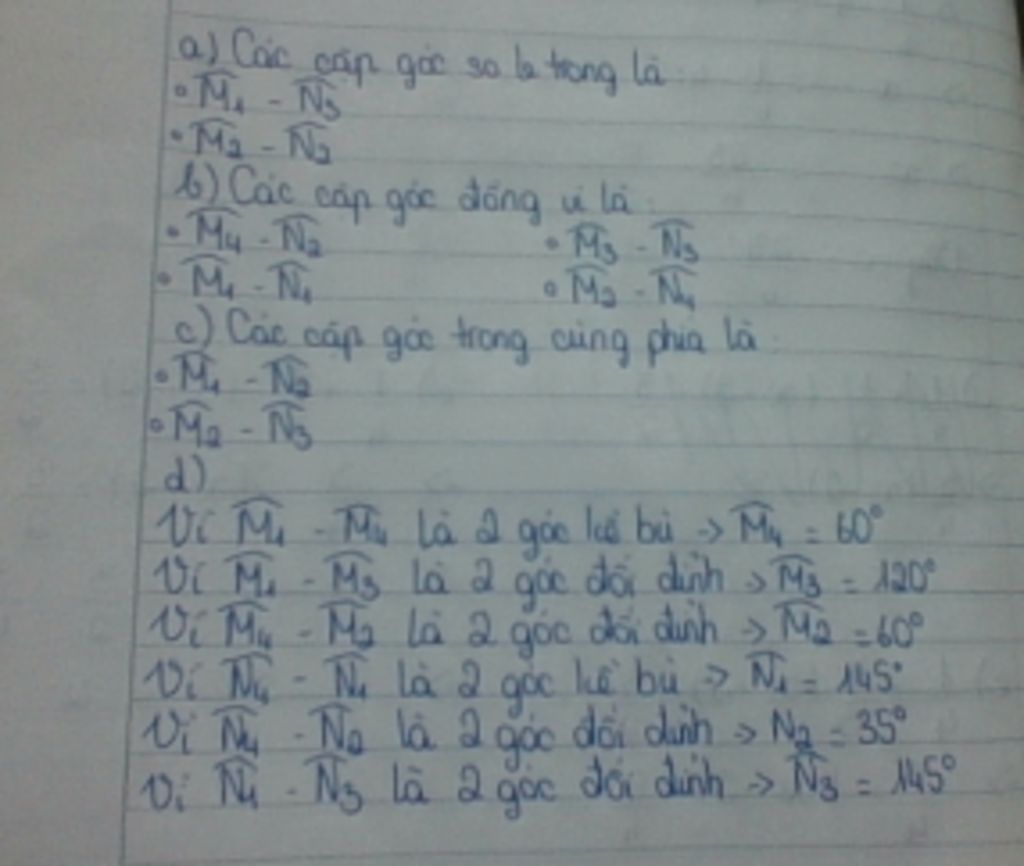 a) Các cặp góc so le trong là
• M̂₁ - N̂₃
• M̂₂ - N̂₂
b) Các cặp góc đồng vị là
• M̂₄ - N̂₂ • M̂₃ - N̂₃
• M̂₁ - N̂₁ • M̂₂ - N̂₄
c) Các cặp góc trong cùng phía là
• M̂₁ - N̂₂
• M̂₂ - N̂₃
d)
Vì M̂₁ - M̂₄ là 2 góc kề bù -> M̂₄ = 60°
Vì M̂₁ - M̂₃ là 2 góc đối đỉnh -> M̂₃ = 120°
Vì M̂₄ - M̂₂ là 2 góc đối đỉnh -> M̂₂ = 60°
Vì N̂₄ - N̂₁ là 2 góc kề bù -> N̂₁ = 145°
Vì N̂₄ - N̂₂ là 2 góc đối đỉnh -> N₂ = 35°
Vì N̂₁ - N̂₃ là 2 góc đối đỉnh -> N̂₃ = 145°